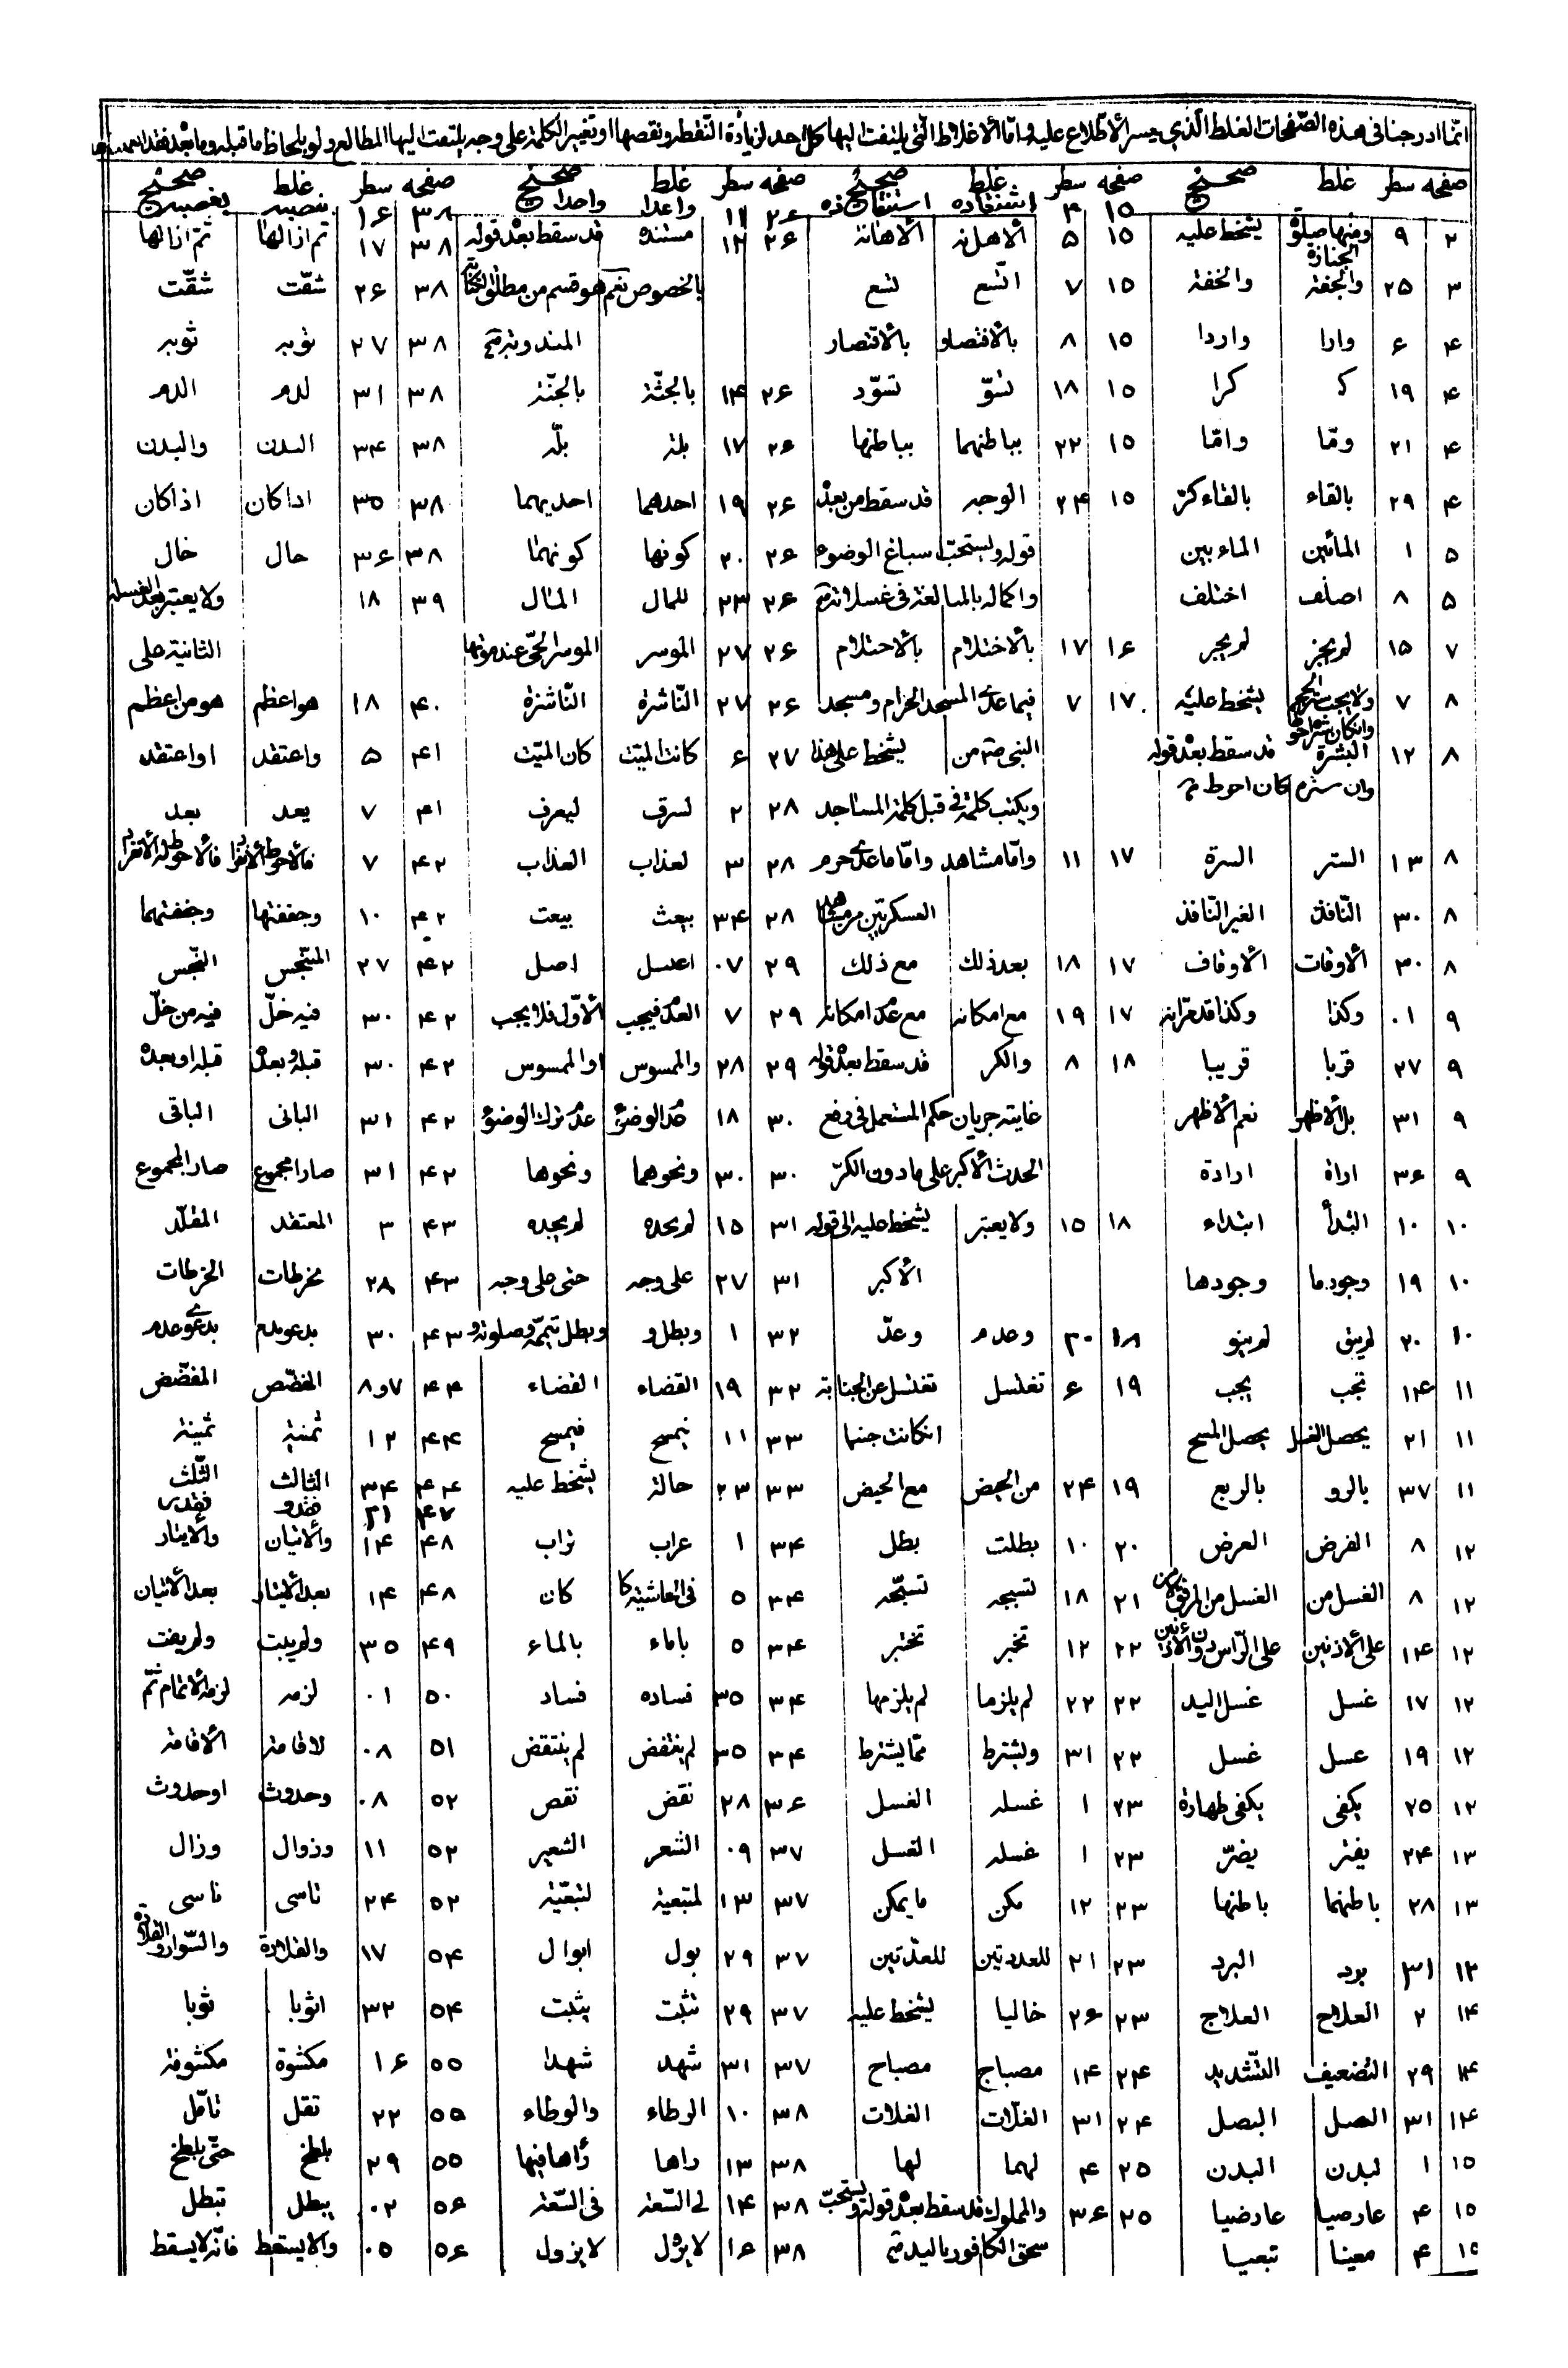 انما ادرجنا فى هذه الصفحات الغلط الذى يسر الأطلاع عليه و امّا الأغلاط التى يلتفت اليها كل احد لزيادة النقط و نقصها او تغيير الكلمة على وجه يلتفت اليها المطالع و لو بلحاظ ما قبله و ما بعد فقد
صفحه سطر غلط صحيح صفحه سطر غلط صحيح صفحه سطر غلط صحيح صفحه سطر غلط صحيح
۱۵ ۴ ۲۶ ۱۱ واعدا واحدا ۳۸ ۱۶
۲ ۹ ومنها صلوة الجنازة يشخط عليه ۱۵ ۵ الأهلنه الأهانة ۲۶ ۱۲ مستنده قد سقط بعد قوله ۳۸ ۱۷ تم ازالها ثمّ ازالها
۳ ۲۵ والجفنه والخفة ۱۵ ۷ التسع لتسع بالخصوص نعم هو قسم من مطلق ۳۸ ۲۶ شقت شقّت
۴ ۶ وارا واردا ۱۵ ۸ بالأقتصاو بالأقتصار المندوبة ۳۸ ۲۷ ثوبر ثوبه
۴ ۱۹ كـ كرا ۱۵ ۱۸ تسوّ تسوّد ۲۶ ۱۴ بالجثّة بالجنّة ۳۸ ۳۱ لدم الدم
۴ ۲۱ ومّا وامّا ۱۵ ۲۲ بباطنهما بباطنها ۲۶ ۱۷ بلة بلّه ۳۸ ۳۴ البدن والبدن
۴ ۲۹ بالقاء بالقاء كرّ ۱۵ ۲۴ الوجه قد سقط من بعد ۲۶ ۱۹ احدهما احديهما ۳۸ ۳۵ اداكان اذاكان
۵ ۱ المائين الماءبين قوله ويستحب اسباغ الوضوء ۲۶ ۲۰ كونها كونهما ۳۸ ۳۶ حال خال
۵ ۸ اصلف اختلف واكماله بالمبالغة فى غسلاته ۲۶ ۲۳ للمال المال ۳۹ ۱۸ ولا يعتبر بعد الغسلة
۷ ۱۵ لم يجز لم يجر ۱۶ ۱۷ بالأختلام بالأحتلام ۲۶ ۲۷ الموسر الموسر الحىّ عند موتها الثانية على
۸ ۷ يشخط عليه ۱۷ ۷ فيما عدى المسجد الحرام و مسجد ۲۶ ۲۷ النّاشرة النّاشزة ۴۰ ۱۸ هو اعظم هو من اعظم
۸ ۱۲ البشرة قد سقط بعد قوله النبى من يشخط على هذا ۲۷ ۶ كانت الميّت كان الميّت ۴۱ ۵ واعتقد او اعتقد
وان ستره كان احوط ويكتب كلمة فى قبل كلمة المساجد ۲۸ ۲ لسرق ليعرف ۴۱ ۷ يعد بعد
۸ ۱۳ الستر السرة ۱۷ ۱۱ وامّا مشاهد وامّا ما عدى حرم ۲۸ ۳ لعذاب العذاب ۴۲ ۷
۸ ۳۰ النّافذ الغير النّافذ العسكريّين ۲۸ ۳۴ بيعث بيعت ۴۲ ۱۰ وجففتها وجففتهما
۸ ۳۰ الأوقات الأوقاف ۱۷ ۱۸ بعد ذلك مع ذلك ۲۹ ۰۷ اعسل اصل ۴۲ ۲۷ المتنجّس النجّس
۹ ۰۱ وكذا ۱۷ ۱۹ مع امكانه مع عدم امكانه ۲۹ ۷ العدم فيجب الأوّل فلا يجب ۴۲ ۳۰ فيه خلّ فيه من خلّ
۹ ۲۷ قربا قريبا ۱۸ ۸ والكر قد سقط بعد قوله ۲۹ ۲۸ والممسوس او الممسوس ۴۲ ۳۰ قبله و بعده قبله او بعده
۹ ۳۱ بل الأظهر نعم الأظهر غايته جريان حكم المستعمل فى رفع ۳۰ ۱۸ عدم الوضوء عدم ترك الوضوء ۴۲ ۳۱ البانى الباقى
۹ ۳۶ اراة ارادة الحدث الأكبر على ما دون الكرّ ۳۰ ۳۰ ونحوهما ونحوها ۴۲ ۳۱ صار مجموع صار المجموع
۱۰ ۱۰ البدأ ابتداء ۱۸ ۱۵ ولا يعتبر يشخط عليه الى قوله ۳۱ ۱۵ لم يحده لم يجده ۴۳ ۳ المعتقد المقلّد
۱۰ ۱۹ وجود ما وجودها الأكبر ۳۱ ۲۷ على وجه حتى على وجه ۴۳ ۲۸ مخرطات الخرطات
۱۰ ۲۰ لم ينو ۱۸ ۳۰ وعدم وعدّ ۳۲ ۱ وبطل و وبطل تيمّمه وصلوته و ۴۳ ۳۰
۱۱ ۱۴ تجب يجب ۱۹ ۶ تغتسل تغتسل عن الجنابة ۳۲ ۱۹ القضاء الفضاء ۴۴ ۷و۸ المفضّض
۱۱ ۲۱ يحصل الغسل يحصل المسح انكانت جنبا ۳۳ ۱۱ يمسح فيمسح ۴۴ ۱۲ ثمنية ثمينة
۱۱ ۳۷ بالرو بالربع ۱۹ ۲۴ من الحيض مع الحيض ۳۳ ۲۳ حالة يشخط عليه ۴۴ ۳۴ الثالث الثّلث
۴۷ ۲۱ فقدو فقدر
۱۲ ۸ الفرض العرض ۲۰ ۱۰ بطلت بطل ۳۴ ۱ عراب تراب ۴۸ ۱۴ والأتيان والأيتار
۱۲ ۸ الغسل من الغسل من المرفق ۲۱ ۱۸ تسبحه تسبّحه ۳۴ ۵ فى الحاشية كا كان ۴۸ ۱۴ بعد الأيتار بعد الأتيان
۱۲ ۱۴ على الأذنين على الرّاس دون الأذنين ۲۲ ۱۲ تخبر تختبر ۳۴ ۵ باماء بالماء ۴۹ ۳۵ ولم يبت ولم يفت
۱۲ ۱۷ غسل غسل اليد ۲۲ ۲۲ لم يلزما لم يلزمها ۳۴ ۳۵ فساده فساد ۵۰ ۰۱ لزمه لزمه الأتمام ثمّ
۱۲ ۱۹ عسل غسل ۲۲ ۳۱ ويشترط ممّا يشترط ۳۴ ۳۵ لم ينتفض لم ينتقض ۵۱ ۰۸ لاقامة الأقامة
۱۲ ۲۵ يكفى يكفى طهارة ۲۳ ۱ غسله الغسل ۳۶ ۲۸ نقض نقص ۵۲ ۰۸ وحدوث اوحدوث
۱۳ ۲۴ يفتر يضرّ ۲۳ ۱ غسله الغسل ۳۷ ۰۹ الشعر الشعير ۵۲ ۱۱ وزوال وزال
۱۳ ۲۸ باطنهما باطنها ۲۳ ۱۲ مكن ما يمكن ۳۷ ۱۳ لتبعية لتبعّية ۵۲ ۲۴ تاسى ناسى
۱۳ ۳۱ برد البرد ۲۳ ۲۱ للعددتين للعدّتين ۳۷ ۲۹ بول ابوال ۵۴ ۱۷ والقلادة والسّوار والقلادة
۱۴ ۲ العلاح العلاج ۲۳ ۲۶ خاليا يشخط عليه ۳۷ ۲۹ تثبت يثبت ۵۴ ۳۲ اثوبا ثوبا
۱۴ ۲۹ التضعيف التّشديد ۲۴ ۱۴ مصباج مصباح ۳۷ ۳۱ شهد شهدا ۵۵ ۱۶ مكشوة مكشوفة
۱۴ ۳۱ الصل البصل ۲۴ ۳۱ الغلّات الغلات ۳۸ ۱۰ الرطاء والوطاء ۵۵ ۲۲ تقل تأمّل
۱۵ ۱ لبدن البدن ۲۵ ۴ لهما لها ۳۸ ۱۳ راها رأها فيها ۵۵ ۲۹ يلطخ حتّى يلطخ
۱۵ ۴ عارصيا عارضيا ۲۵ ۳۶ والمملوك قد سقط بعد قوله ويستحبّ ۳۸ ۱۴ لى السّعة فى السّعة ۵۶ ۰۲ يبطل تبطل
۱۵ ۴ معينا تبعيا سحق الكافور باليد ۳۸ ۱۶ لا يزل لا يزول ۵۶ ۰۵ والا يسقط فانّه لا يسقط